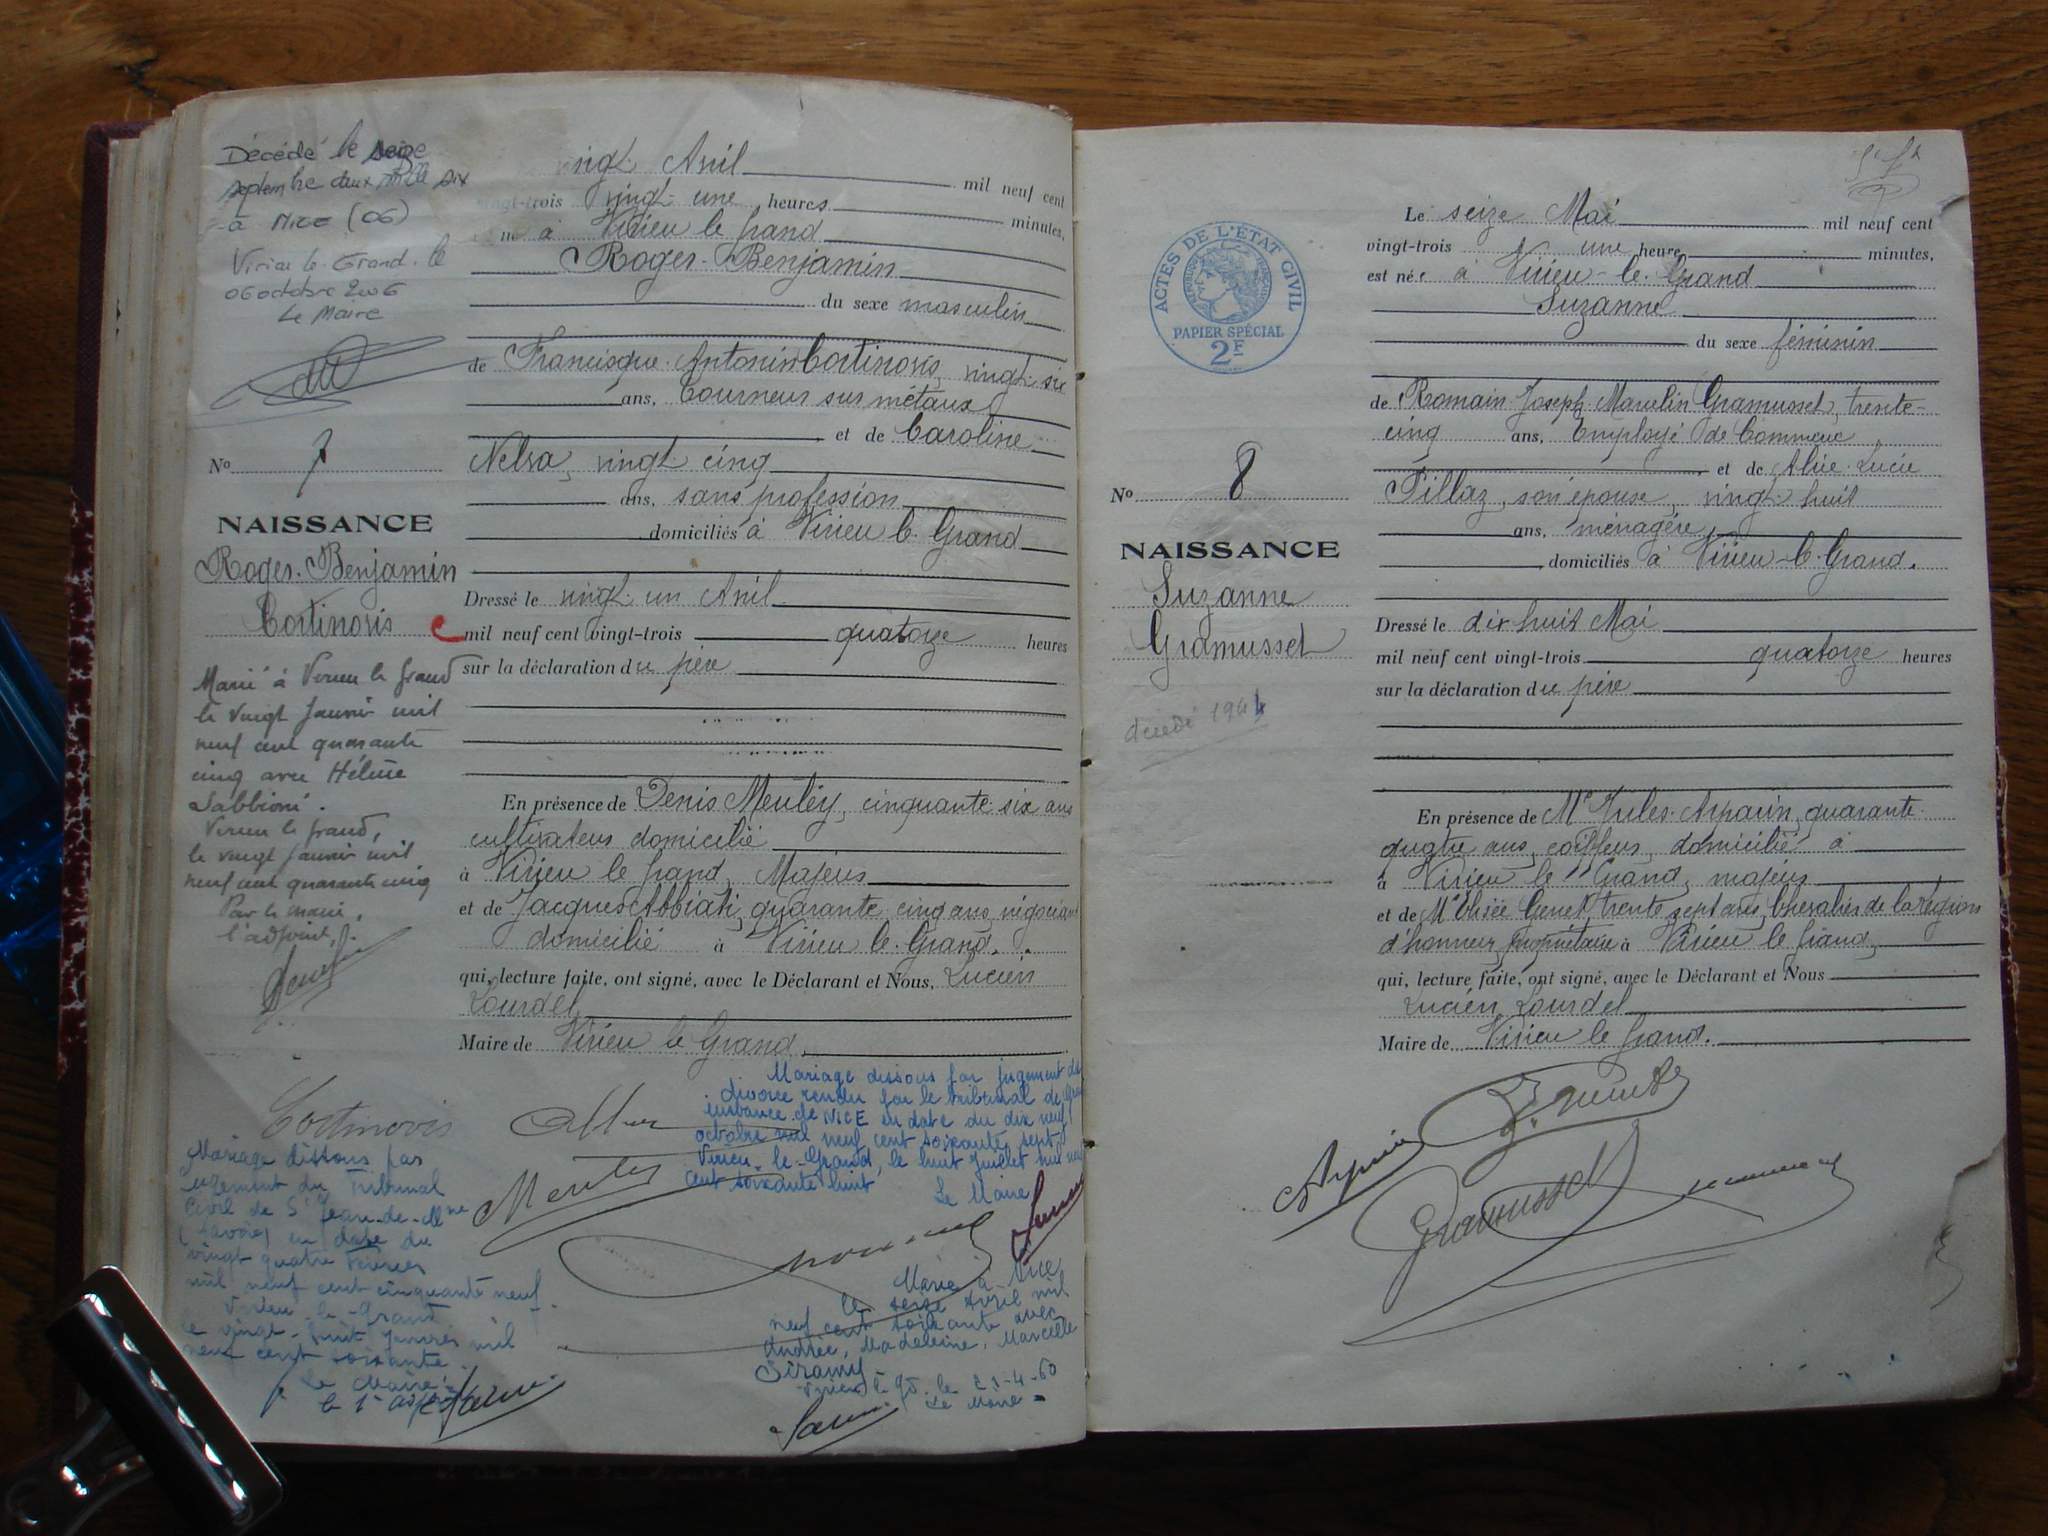 Décédé le seize
septembre deux mille six
à NICE (06)
Virieu le Grand le
06 octobre 2006
Le Maire
No 7
NAISSANCE
Roger-Benjamin
Cortinovis
Marié à Virieu le Grand
le vingt Janvier mil
neuf cent quarante
cinq avec Hélène
Sabbioni.
Virieu le Grand,
le vingt Janvier mil
neuf cent quarante cinq
Par le maire,
l'adjoint,
vingt Avril mil neuf cent
vingt-trois vingt une heures minutes,
né à Virieu le Grand
Roger-Benjamin
du sexe masculin
de Francisque-Antonin Cortinovis, vingt six
ans, Tourneur sur métaux
et de Caroline
Nelva, vingt cinq
ans, sans profession
domiciliés à Virieu le Grand
Dressé le vingt un Avril
mil neuf cent vingt-trois quatorze heures
sur la déclaration du père
En présence de Denis Meuley, cinquante-six ans
cultivateur domicilié
à Virieu le Grand, Majeur
et de Jacques Abbiati, quarante cinq ans négociant
domicilié à Virieu le Grand.
qui, lecture faite, ont signé, avec le Déclarant et Nous, Lucien
Lourdel
Maire de Virieu le Grand.
Mariage dissous par jugement de
divorce rendu par le tribunal de
instance de NICE en date du dix neuf
octobre mil neuf cent soixante sept
Virieu-le-Grand, le huit Juillet mil neuf
cent soixante huit
Le Maire
Cortinovis
Mariage dissous par
jugement du Tribunal
Civil de St Jean-de-Mne
(Savoie) en date du
vingt quatre Février
mil neuf cent cinquante neuf.
Virieu-le-Grand
le vingt-huit Janvier mil
neuf cent soixante.
Le Maire:
Marié à Nice
le seize Avril mil
neuf cent soixante avec
Andrée, Madeleine, Marcelle
Siramy
Virieu le Gd. le 21-4-60
Le Maire
ACTES DE L'ÉTAT CIVIL
RÉPUBLIQUE FRANÇAISE
PAPIER SPÉCIAL
2F
No 8
NAISSANCE
Suzanne
Gramusset
décédé 1944
Le seize Mai mil neuf cent
vingt-trois une heure minutes,
est née à Virieu-le-Grand
Suzanne
du sexe féminin
de Romain-Joseph-Marcelin Gramusset, trente-
cinq ans, Employé de Commerce
et de Alice-Lucie
Fillaz, son épouse, vingt huit
ans, ménagère,
domiciliés à Virieu-le-Grand.
Dressé le dix huit Mai
mil neuf cent vingt-trois quatorze heures
sur la déclaration du père
En présence de Mr Jules Arparin, quarante
quatre ans, coiffeur, domicilié à
à Virieu le Grand, majeur
et de Mr Elisée Genet, trente sept ans, Chevalier de la Légion
d'honneur, propriétaire à Virieu le Grand,
qui, lecture faite, ont signé, avec le Déclarant et Nous
Lucien Lourdel
Maire de Virieu le Grand.
Gramusset